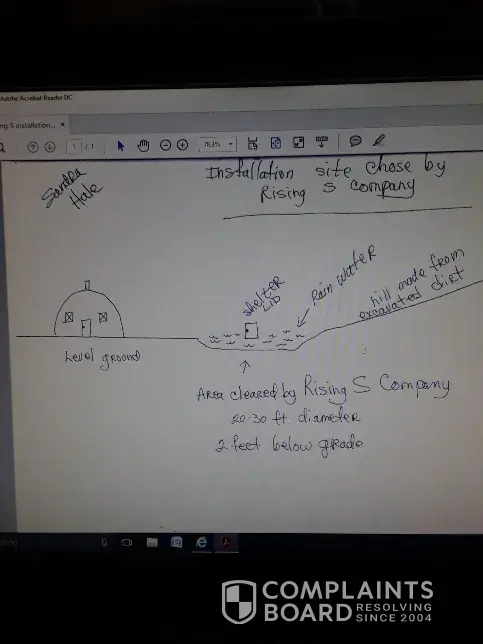 Adobe Acrobat Reader DC
ng S installation... ×
1 / 1
78.3%
Sandra
Hale
Installation site chose by
Rising S company
shelter
LID
Rain water
hill made from
excavated dirt
Level ground
Area cleared by Rising S Company
20-30 ft. diameter
2 feet below grade
COMPLAINTS
BOARD RESOLVING
SINCE 2004